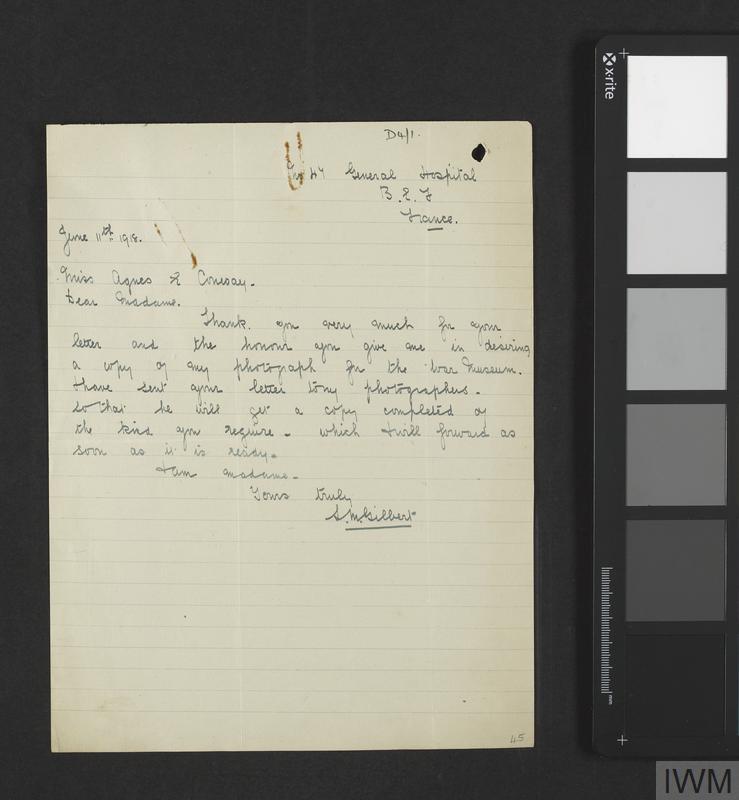 D4/1.
No 47 General Hospital
B.E.F
France.
June 11th 1918.
Miss Agnes E Conway.
Dear Madame.
Thank you very much for your
letter and the honour you give me in desiring
a copy of my photograph for the War Museum.
I have sent your letter to my photographers.
so that he will get a copy completed of
the kind you require - which I will forward as
soon as it is ready.
I am madame.
Yours truly
S.M. Gilbert
45
x-rite
mm
IWM